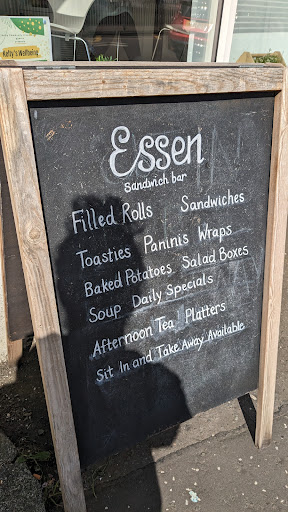 Kelly's Wellbeing
Essen
Sandwich bar
Filled Rolls Sandwiches
Toasties Paninis Wraps
Baked Potatoes Salad Boxes
Soup Daily Specials
Afternoon Tea Platters
Sit In and Take Away Available